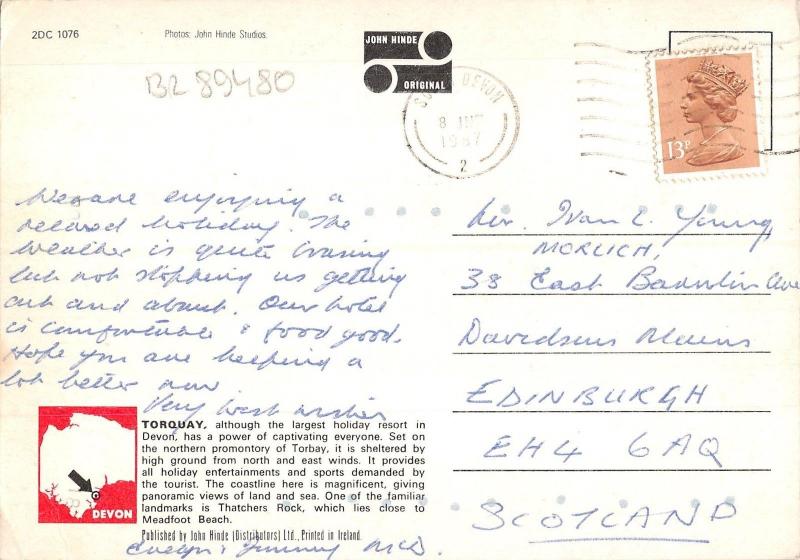 2DC 1076
Photos: John Hinde Studios.
JOHN HINDE
ORIGINAL
BR 89480
DEVON
8 JU
1987
2
13P
We are enjoying a
relaxed holiday. The
weather is quite bracing
but not stopping us getting
out and about. Our hotel
is comfortable & food good.
Hope you are keeping a
lot better now
Very best wishes
Evelyn & Jimmy
Mr. Ivan L. Young,
MORLICH,
38 East Barnton Ave
Davidsons Mains
EDINBURGH
EH4 6AQ
SCOTLAND
TORQUAY, although the largest holiday resort in
Devon, has a power of captivating everyone. Set on
the northern promontory of Torbay, it is sheltered by
high ground from north and east winds. It provides
all holiday entertainments and sports demanded by
the tourist. The coastline here is magnificent, giving
panoramic views of land and sea. One of the familiar
landmarks is Thatchers Rock, which lies close to
Meadfoot Beach.
DEVON
Published by John Hinde (Distributors) Ltd., Printed in Ireland.